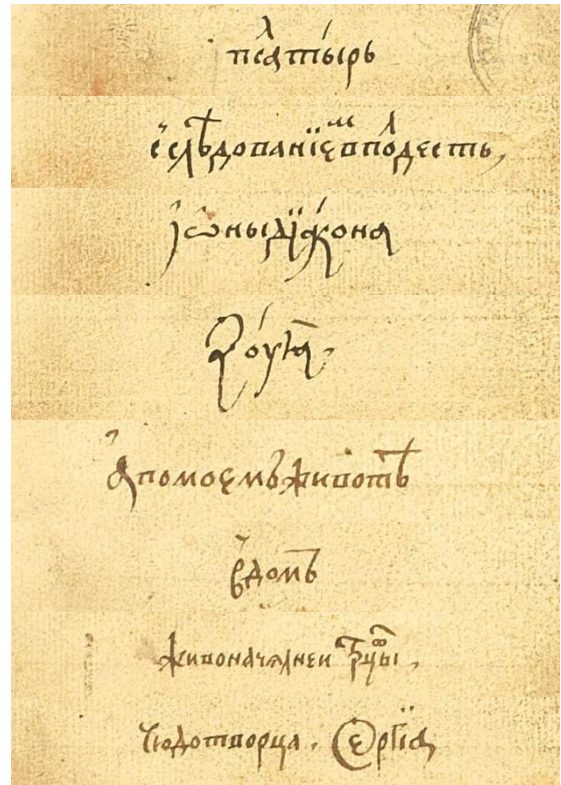 псаⷧтырь
с слѣдованїеⷨ в поⷧдесть,
іѡны дїꙗкона
Зоуꙗ.
а по моемъ животѣ
в домъ
живоначалнеи трⷪцы,
чюдотворца. Сергїа